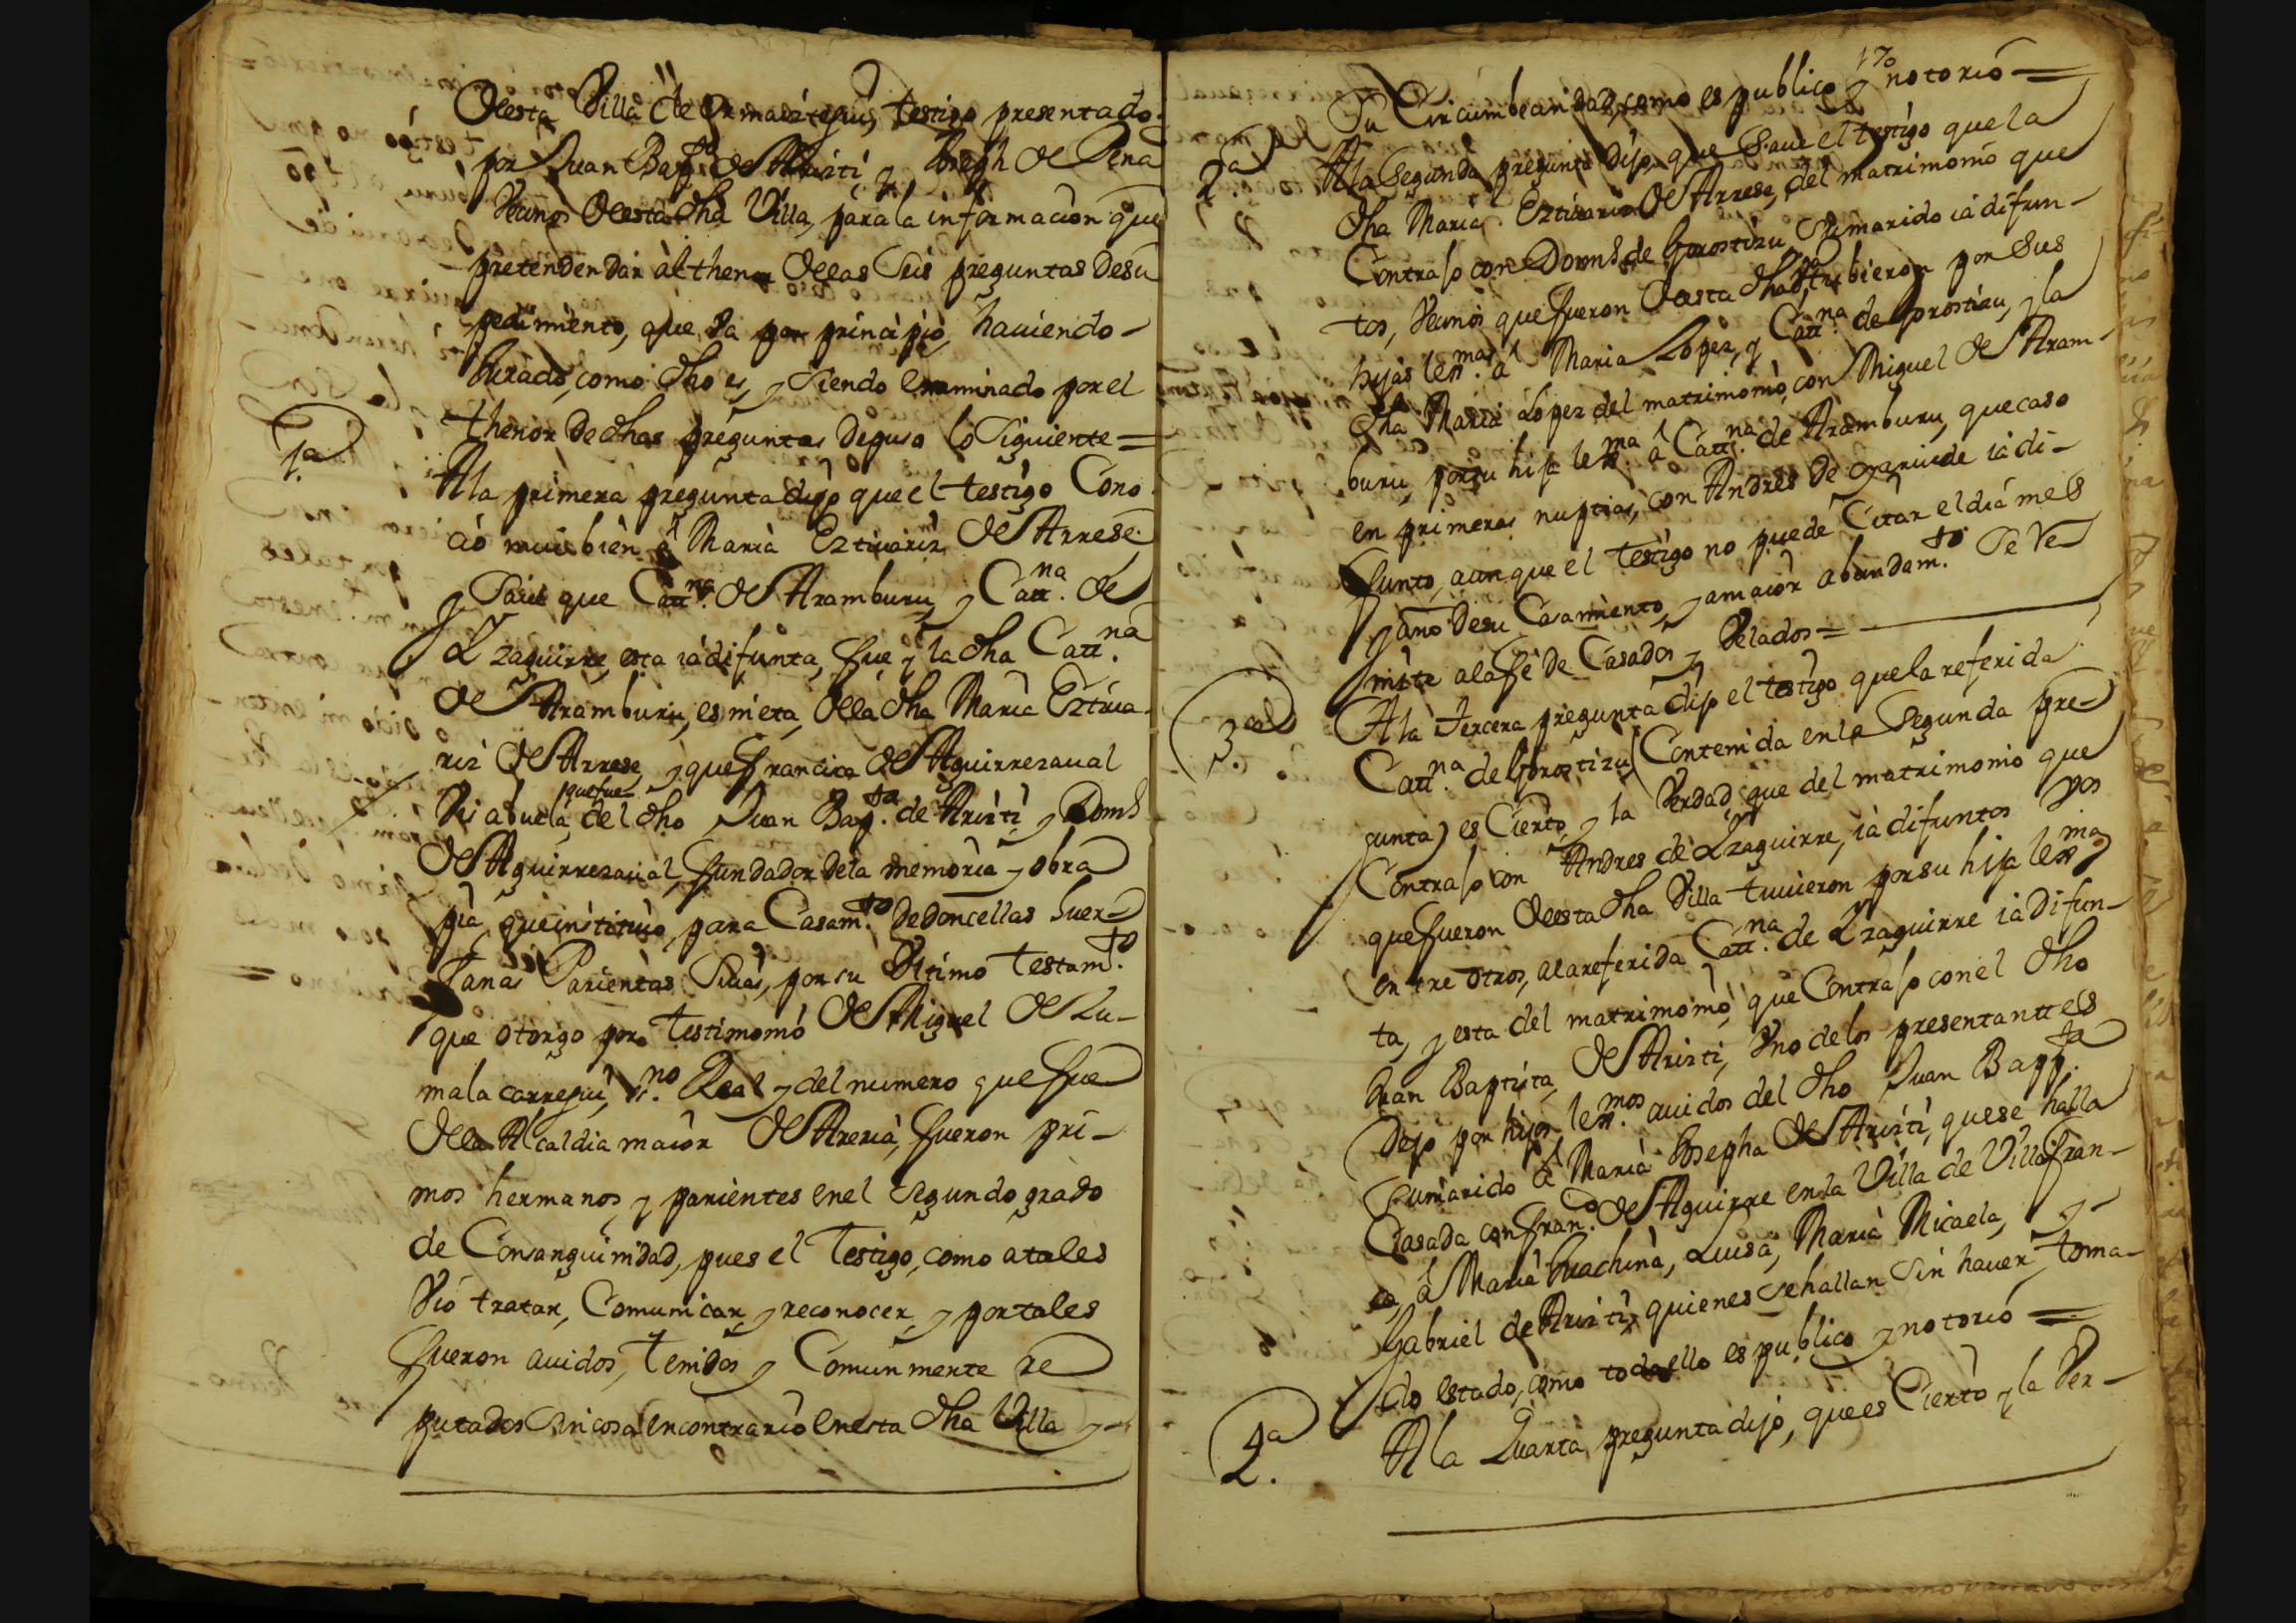 Desta Villa de Ormaiztegui, testigo presentado
por Juan Bap.ta de Aristi, y Joseph de Pena
Vecinos desta dha Villa, para la informacion que
pretenden dar àl thenor de las Seis preguntas de su
pedimiento, que va por principio, haviendo
Jurado, como dho es, y Siendo examinado por el
thenor de dhas preguntas depuso lo Siguiente =
1.a
A la primera pregunta dijo que el testigo Cono
ció mui bien á Maria Eztivariz de Arrese
y Save que Catt.na de Aramburu, y Catt.na de
Yzaguirre, esta ia difunta, fue y la dha Catt.na
de Aramburu, es nieta, de la dha Maria Eztiva
riz de Arrese, y que Francisca de Aguirrezaual
que fue
Vis abuela, del dho Juan Bap.ta de Aristi, y Dom.s
de Aguirrezaual, fundador de la memoria y obra
pia, que instituyò, para Casam.to de doncellas huer
fanas Parientas Suias, por su Ultimo testam.to
que otorgo por testimonio de Miguel de Za
malacarregui, ss.no Real y del numero que fue
de la Alcaldia maior de Areria, fueron pri
mos hermanos, y parientes en el Segundo grado
de Consanguinidad, pues el Testigo, como a tales
Vió tratar, Comunicar, y reconocer, y por tales
fueron auidos, tenidos y Comunmente re
putados Sin cosa en contrario en esta dha Villa y
170
Su Circumbecindad, como es publico y notorio =
2.a
A la Segunda pregunta Dijo, que Saue el testigo que la
dha Maria Eztivariz de Arrese, del matrimonio que
Contrajo con Dom.s de Gorostizu Su marido ia difun
tos, Vecinos que fueron desta dha V.a tubieron por Sus
hijas lexmas. á Maria Lopez, y Catt.na de Gorostizu, y la
dha Maria Lopez del matrimonio, con Miguel de Aram
buru, por su hija lexma. á Catt.na de Aramburu, que caso
en primeras nuptias, con Andres de ia di
funto, aunque el testigo no puede Citar el dia mes
y año de su Casamiento, y a maior abundam.to Se Re
mite a la fé de Casados y Velados =
3.a
A la tercera pregunta dijo el testigo que la referida
Catt.na de Gorostizu (Contenida en la Segunda pre
gunta) es Cierto, y la Verdad, que del matrimonio que
Contrajo con Andres de Yzaguirre, ia difuntos Vos
que fueron desta dha Villa tuuieron por su hija lexma.
entre otros, a la referida Catt.na de Yzaguirre ia difun
ta, y esta del matrimonio que Contrajo con el dho
Juan Baptista de Aristi, Uno de los presentantes
Dejo por hijos lexmos. auidos del dho Juan Bapp.ta
Su marido á Maria Josepha de Aristi, que se halla
Casada con Fran.co de Aguirre en la Villa de Villafran
ca, á Maria Juachina, Luisa, Maria Micaela, y
Gabriel de Aristi, quienes se hallan Sin hauer toma
do estado, como todo ello es publico y notorio =
4.a
A la Quarta pregunta dijo, que es Cierto y la Ver